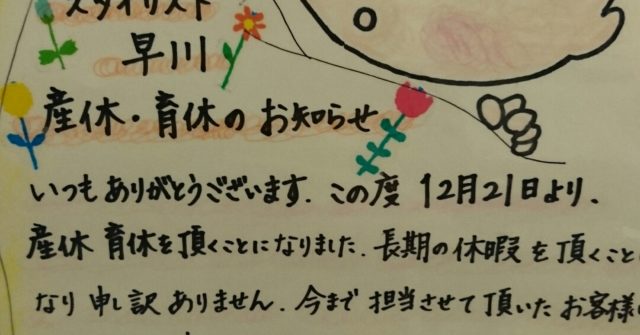 スタイリスト
早川
産休・育休のお知らせ
いつもありがとうございます. この度 12月21日より、
産休 育休を頂くことになりました. 長期の休暇 を 頂くこと
なり 申し訳 ありません. 今まで 担当させて 頂いた お客様